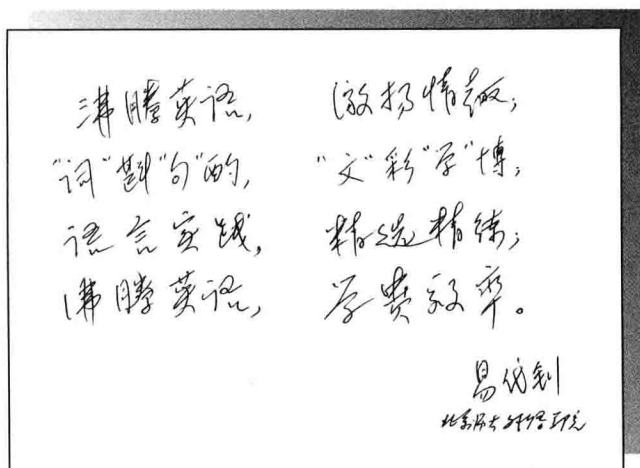 沸腾英语, 激扬情趣;
"词"斟"句"酌, "文"彩"学"博;
语言实践, 精选精练;
沸腾英语, 学贵效率。
易仿钊
北京师大外语